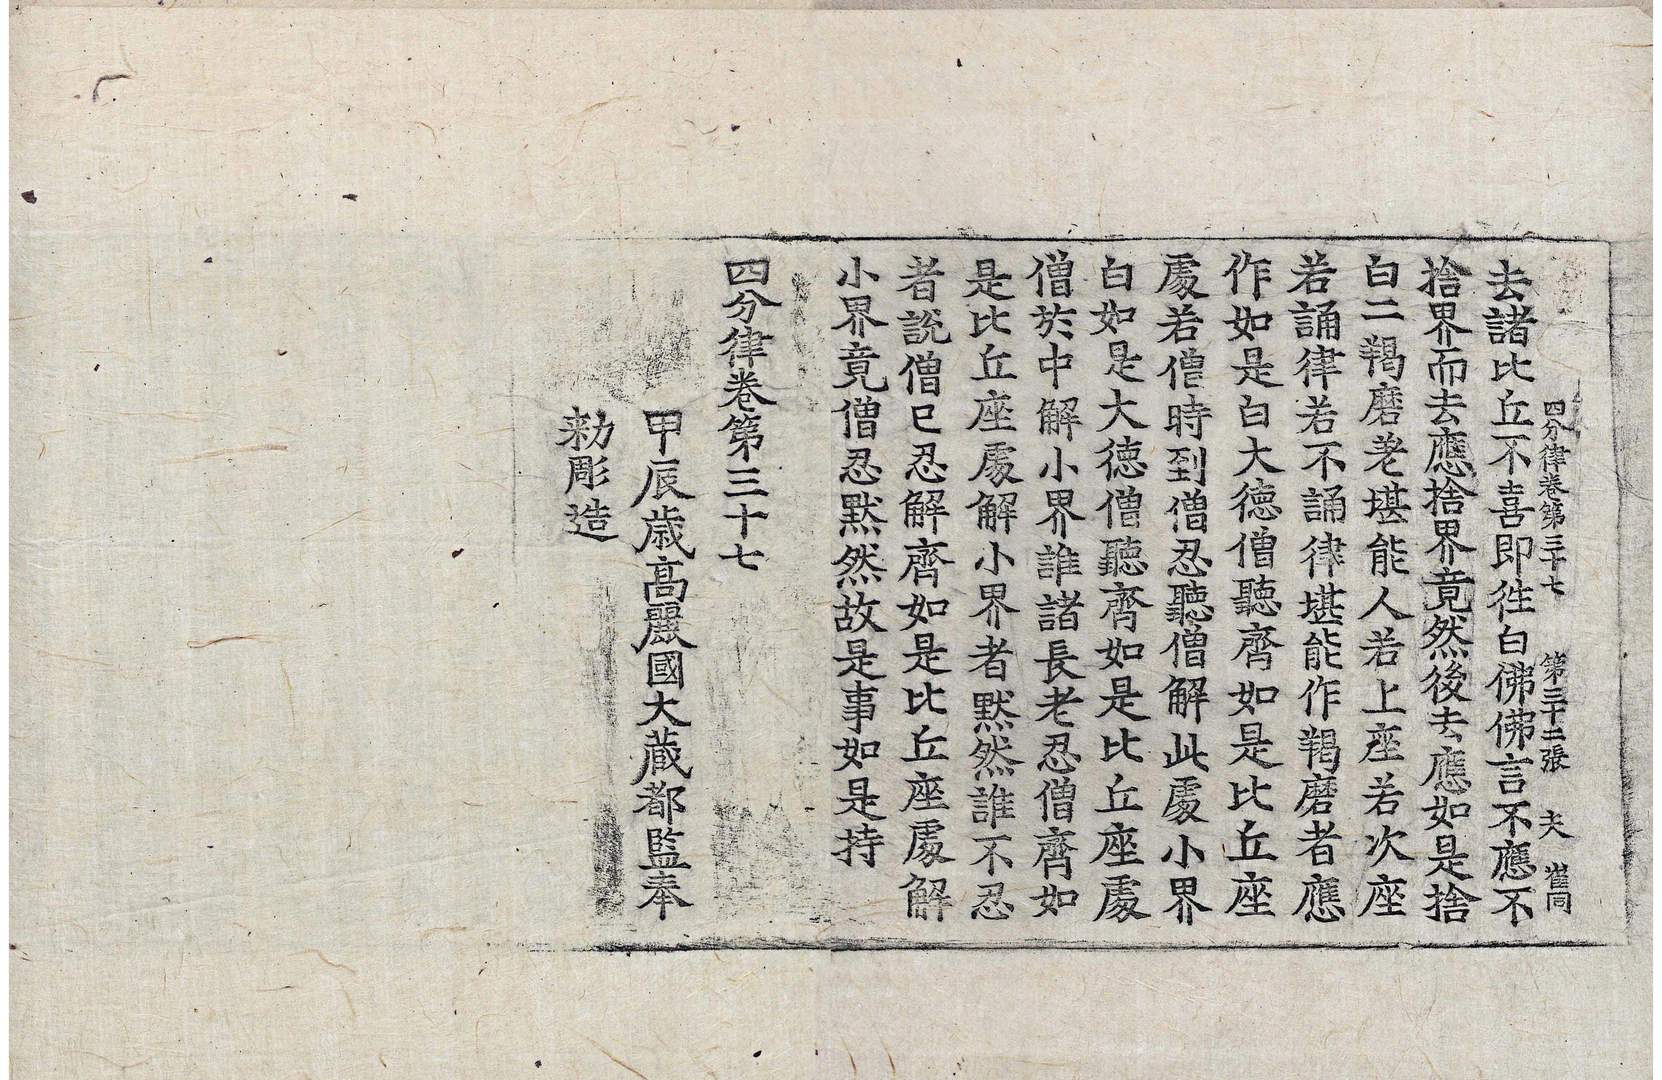 四分律卷第三十七 第三十二張 夫 崔同
去諸比丘不喜即徃白佛佛言不應不
捨界而去應捨界竟然後去應如是捨
白二羯磨老堪能人若上座若次座
若誦律若不誦律堪能作羯磨者應
作如是白大德僧聽齊如是比丘座
處若僧時到僧忍聽僧解此處小界
白如是大德僧聽齊如是比丘座處
僧於中解小界誰諸長老忍僧齊如
是比丘座處解小界者默然誰不忍
者說僧已忍解齊如是比丘座處解
小界竟僧忍默然故是事如是持
四分律卷第三十七
甲辰歲高麗國大藏都監奉
勑彫造